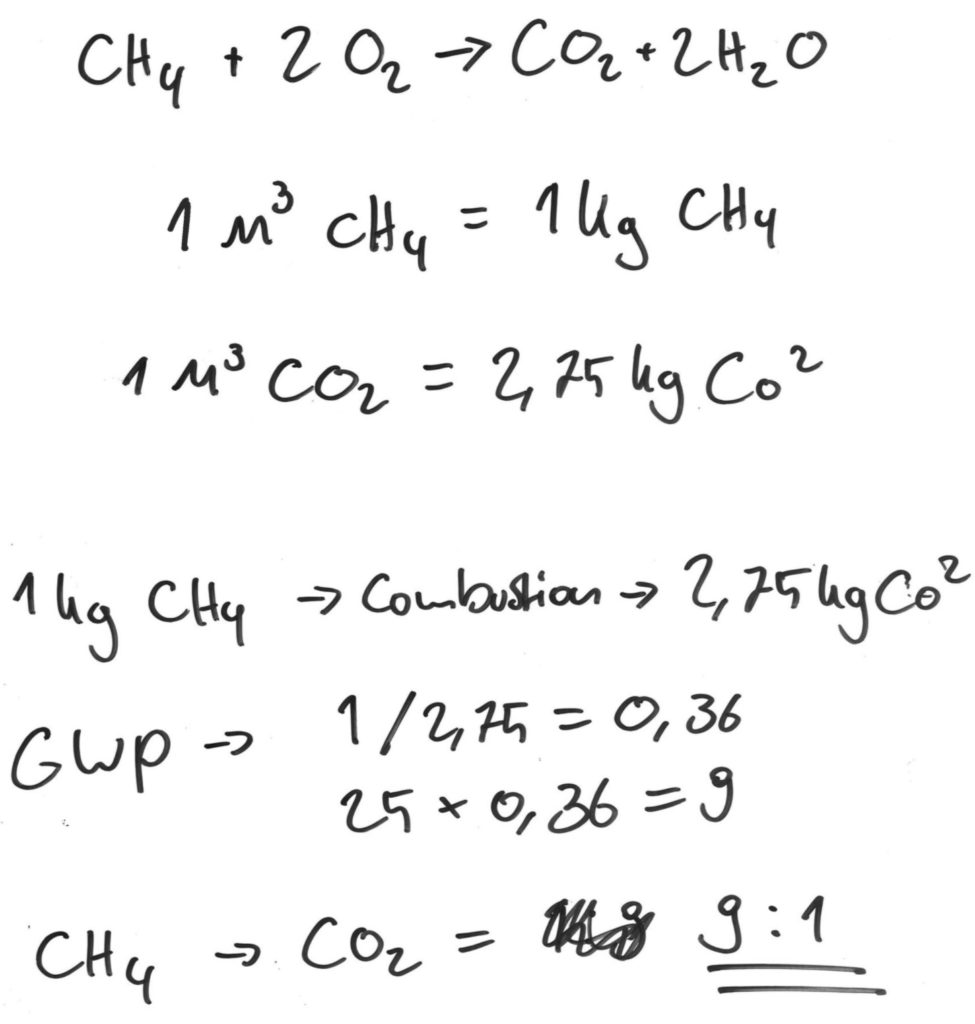 CH₄ + 2 O₂ → CO₂ + 2H₂O
1 m³ CH₄ = 1 kg CH₄
1 m³ CO₂ = 2,75 kg Co²
1 kg CH₄ → Combustion → 2,75 kg Co²
GWP → 1/2,75 = 0,36
25 × 0,36 = 9
CH₄ → CO₂ = 9:1